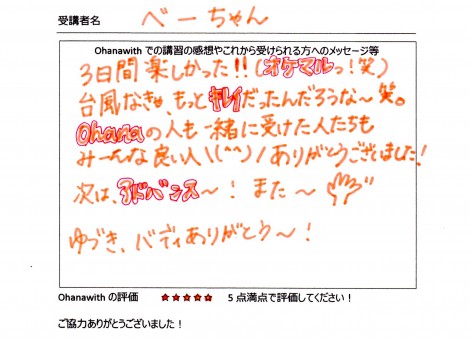 受講者名 べーちゃん
Ohanawith での講習の感想やこれから受けられる方へのメッセージ等
3日間楽しかった!!(オケマルっ!笑)
台風なきゃ、もっとキレイだったんだろうな〜笑。
Ohanaの人も一緒に受けた人たちも
みーんな良い人\(^^)/ありがとうございました!
次は、アドバンス〜! また〜
ゆづき、バディありがとう〜!
Ohanawith の評価 ★★★★★ 5点満点で評価してください!
ご協力ありがとうございました!